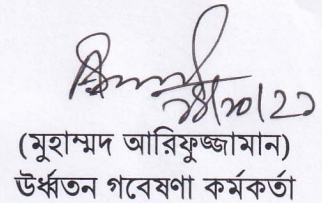 (মুহাম্মদ আরিফুজ্জামান)
উর্ধ্বতন গবেষণা কর্মকর্তা